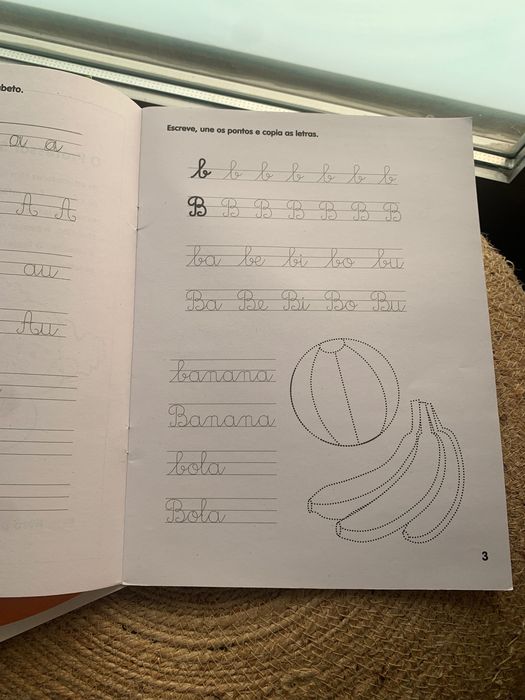 beto.
a a
A A
au
Au
Escreve, une os pontos e copia as letras.
b b b b b b b
B B B B B B B
ba be bi bo bu
Ba Be Bi Bo Bu
banana
Banana
bola
Bola
3